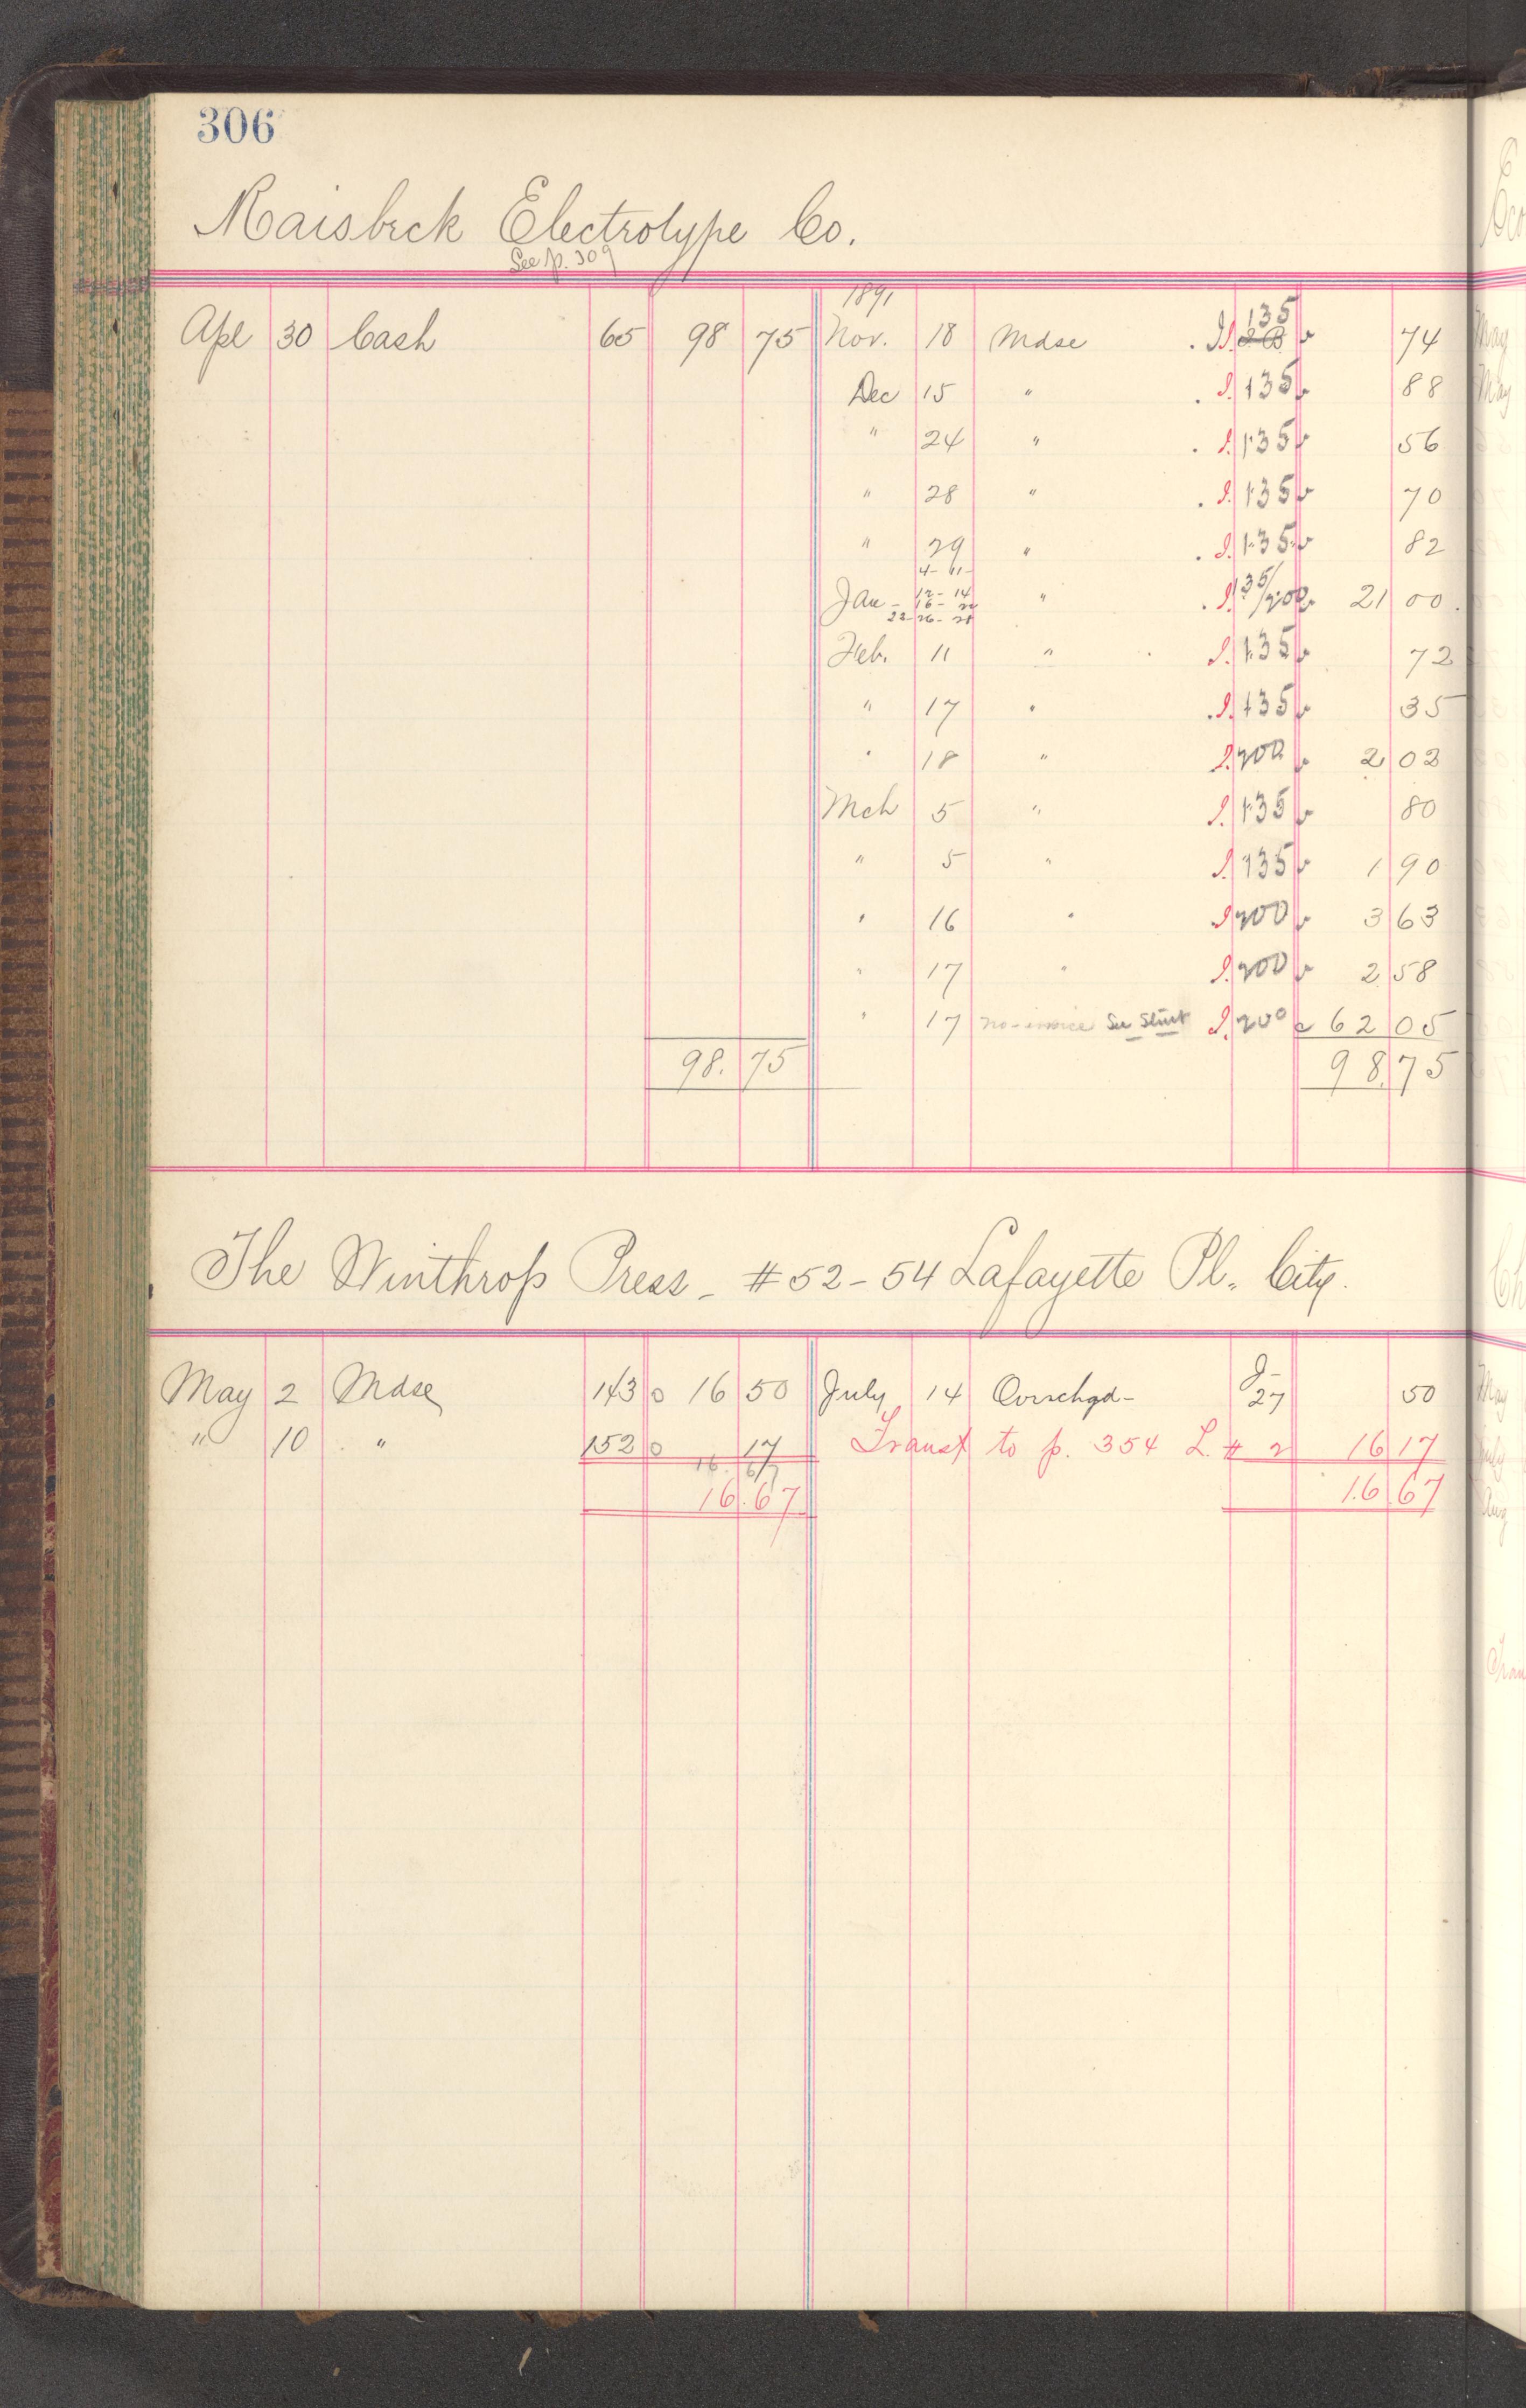 306
Raisbeck Electrotype Co.
See p. 309
1891
Apl 30 Cash 65 98 75 Nov. 18 Mdse J. 135 74
Dec 15 " J. 135 88
" 24 " J. 135 56
" 28 " J. 135 70
" 29 " J. 135 82
4 - 11 -
Jan - 12 - 14 16 - " J. 135/200 21 00
22 - 26 - 28
Feb. 11 " J. 135 72
" 17 " J. 135 35
" 18 " J. 200 2 02
Mch 5 " J. 135 80
" 5 " J. 135 1 90
" 16 " J. 200 3 63
" 17 " J. 200 2 58
" 17 no invoice See Stmt J. 200 62 05
98. 75 98. 75
The Winthrop Press - #52-54 Lafayette Pl. City.
May 2 Mdse 143 16 50 July 14 Overchgd- J- 27 50
" 10 " 152 17 Transf to p. 354 L. # 2 16 17
16. 67
16. 67 16. 67